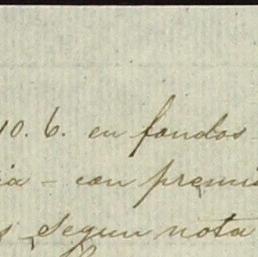 10. 6. en fondos
ia - con premi
s segun nota